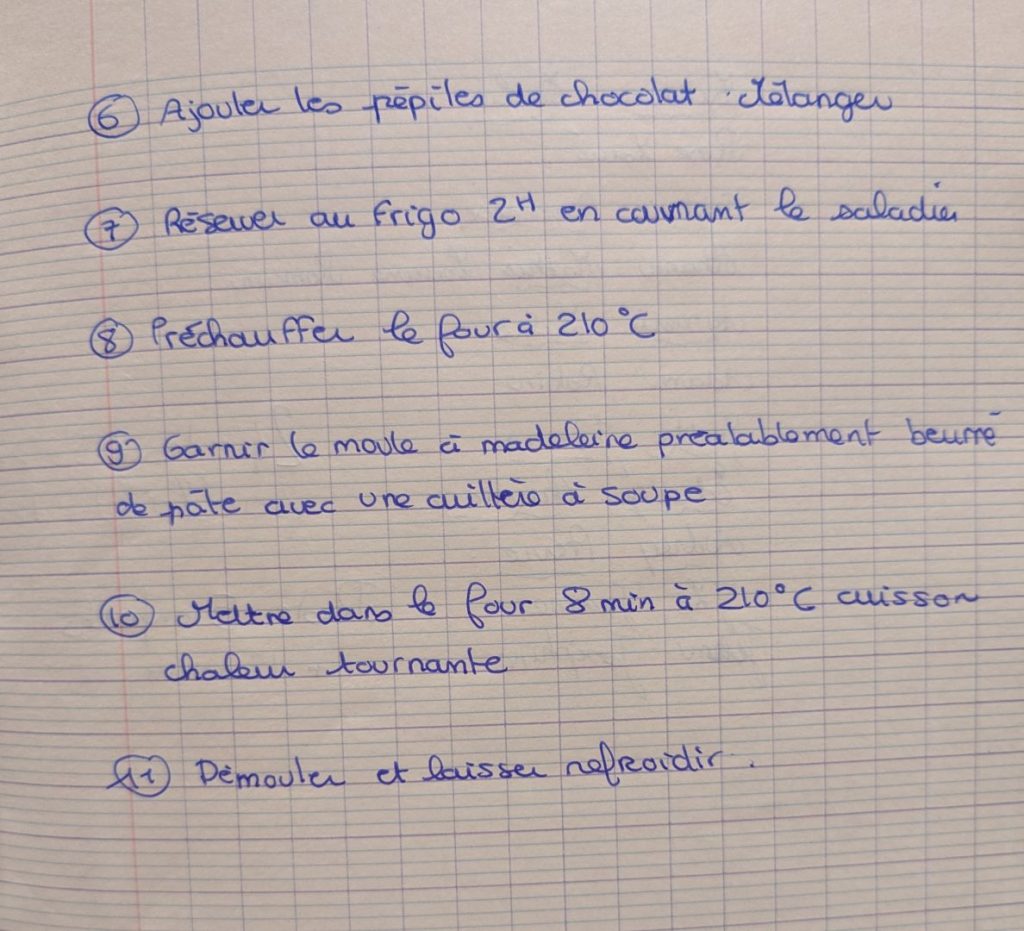 ⑥ Ajouter les pépites de chocolat. Mélanger
⑦ Réserver au frigo 2H en couvrant le saladier
⑧ Préchauffer le four à 210°C
⑨ Garnir le moule à madeleine préalablement beurré
de pâte avec une cuillère à soupe
⑩ Mettre dans le four 8 min à 210°C cuisson
chaleur tournante
⑪ Démouler et laisser refroidir.